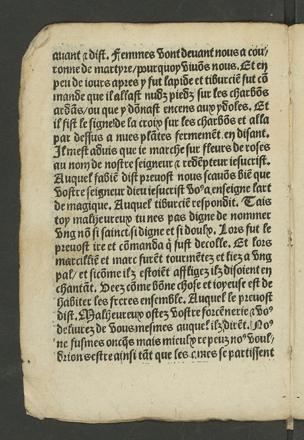 auant ⁊ dist. Femmes vont deuant nous a cou/
ronne de martyre/pourquoy viuōs nous. Et en
peu de iours apres y fut lapide et tiburciē fut cō
mande que il allast nudz piedz sur les charbōs
ardās/ou que y dōnast encens aux ydoles. Et
il fist le signe de la croix sur les charbōs et alla
par dessus a nues plātes fermemēt, en disant.
Il mest aduis que ie marche sur fleurs de roses
au nom de nostre seigneur ⁊ redēpteur iesucrist.
Auquel fabiē dist preuost nous scauōs biē que
vostre seigneur dieu iesucrist voꝰ a enseigne lart
de magique. Auquel tiburciē respondit. Tais
toy malheureux tu nes pas digne de nommer
vng nō si sainct, si digne et si doulx. Lors fut le
preuost ire et cōmanda q̄ fust decolle. Et lors
marcilliē et marc furēt tourmētez et liez a vng
pal/et sicōme ilz estoiēt affligez ilz disoient en
chantāt. Veez cōme bōne chose et ioyeuse est de
habiter les freres ensemble. Auquel le preuost
dist. Malheureux ostez vostre forcenerie ⁊ voꝰ
deliurez de vous mesmes auquel ilz dirēt. Noꝰ
ne fusmes oncq̄s mais mieulx repeuz noꝰ voul/
drion s estre ainsi tāt que les ames se partissent